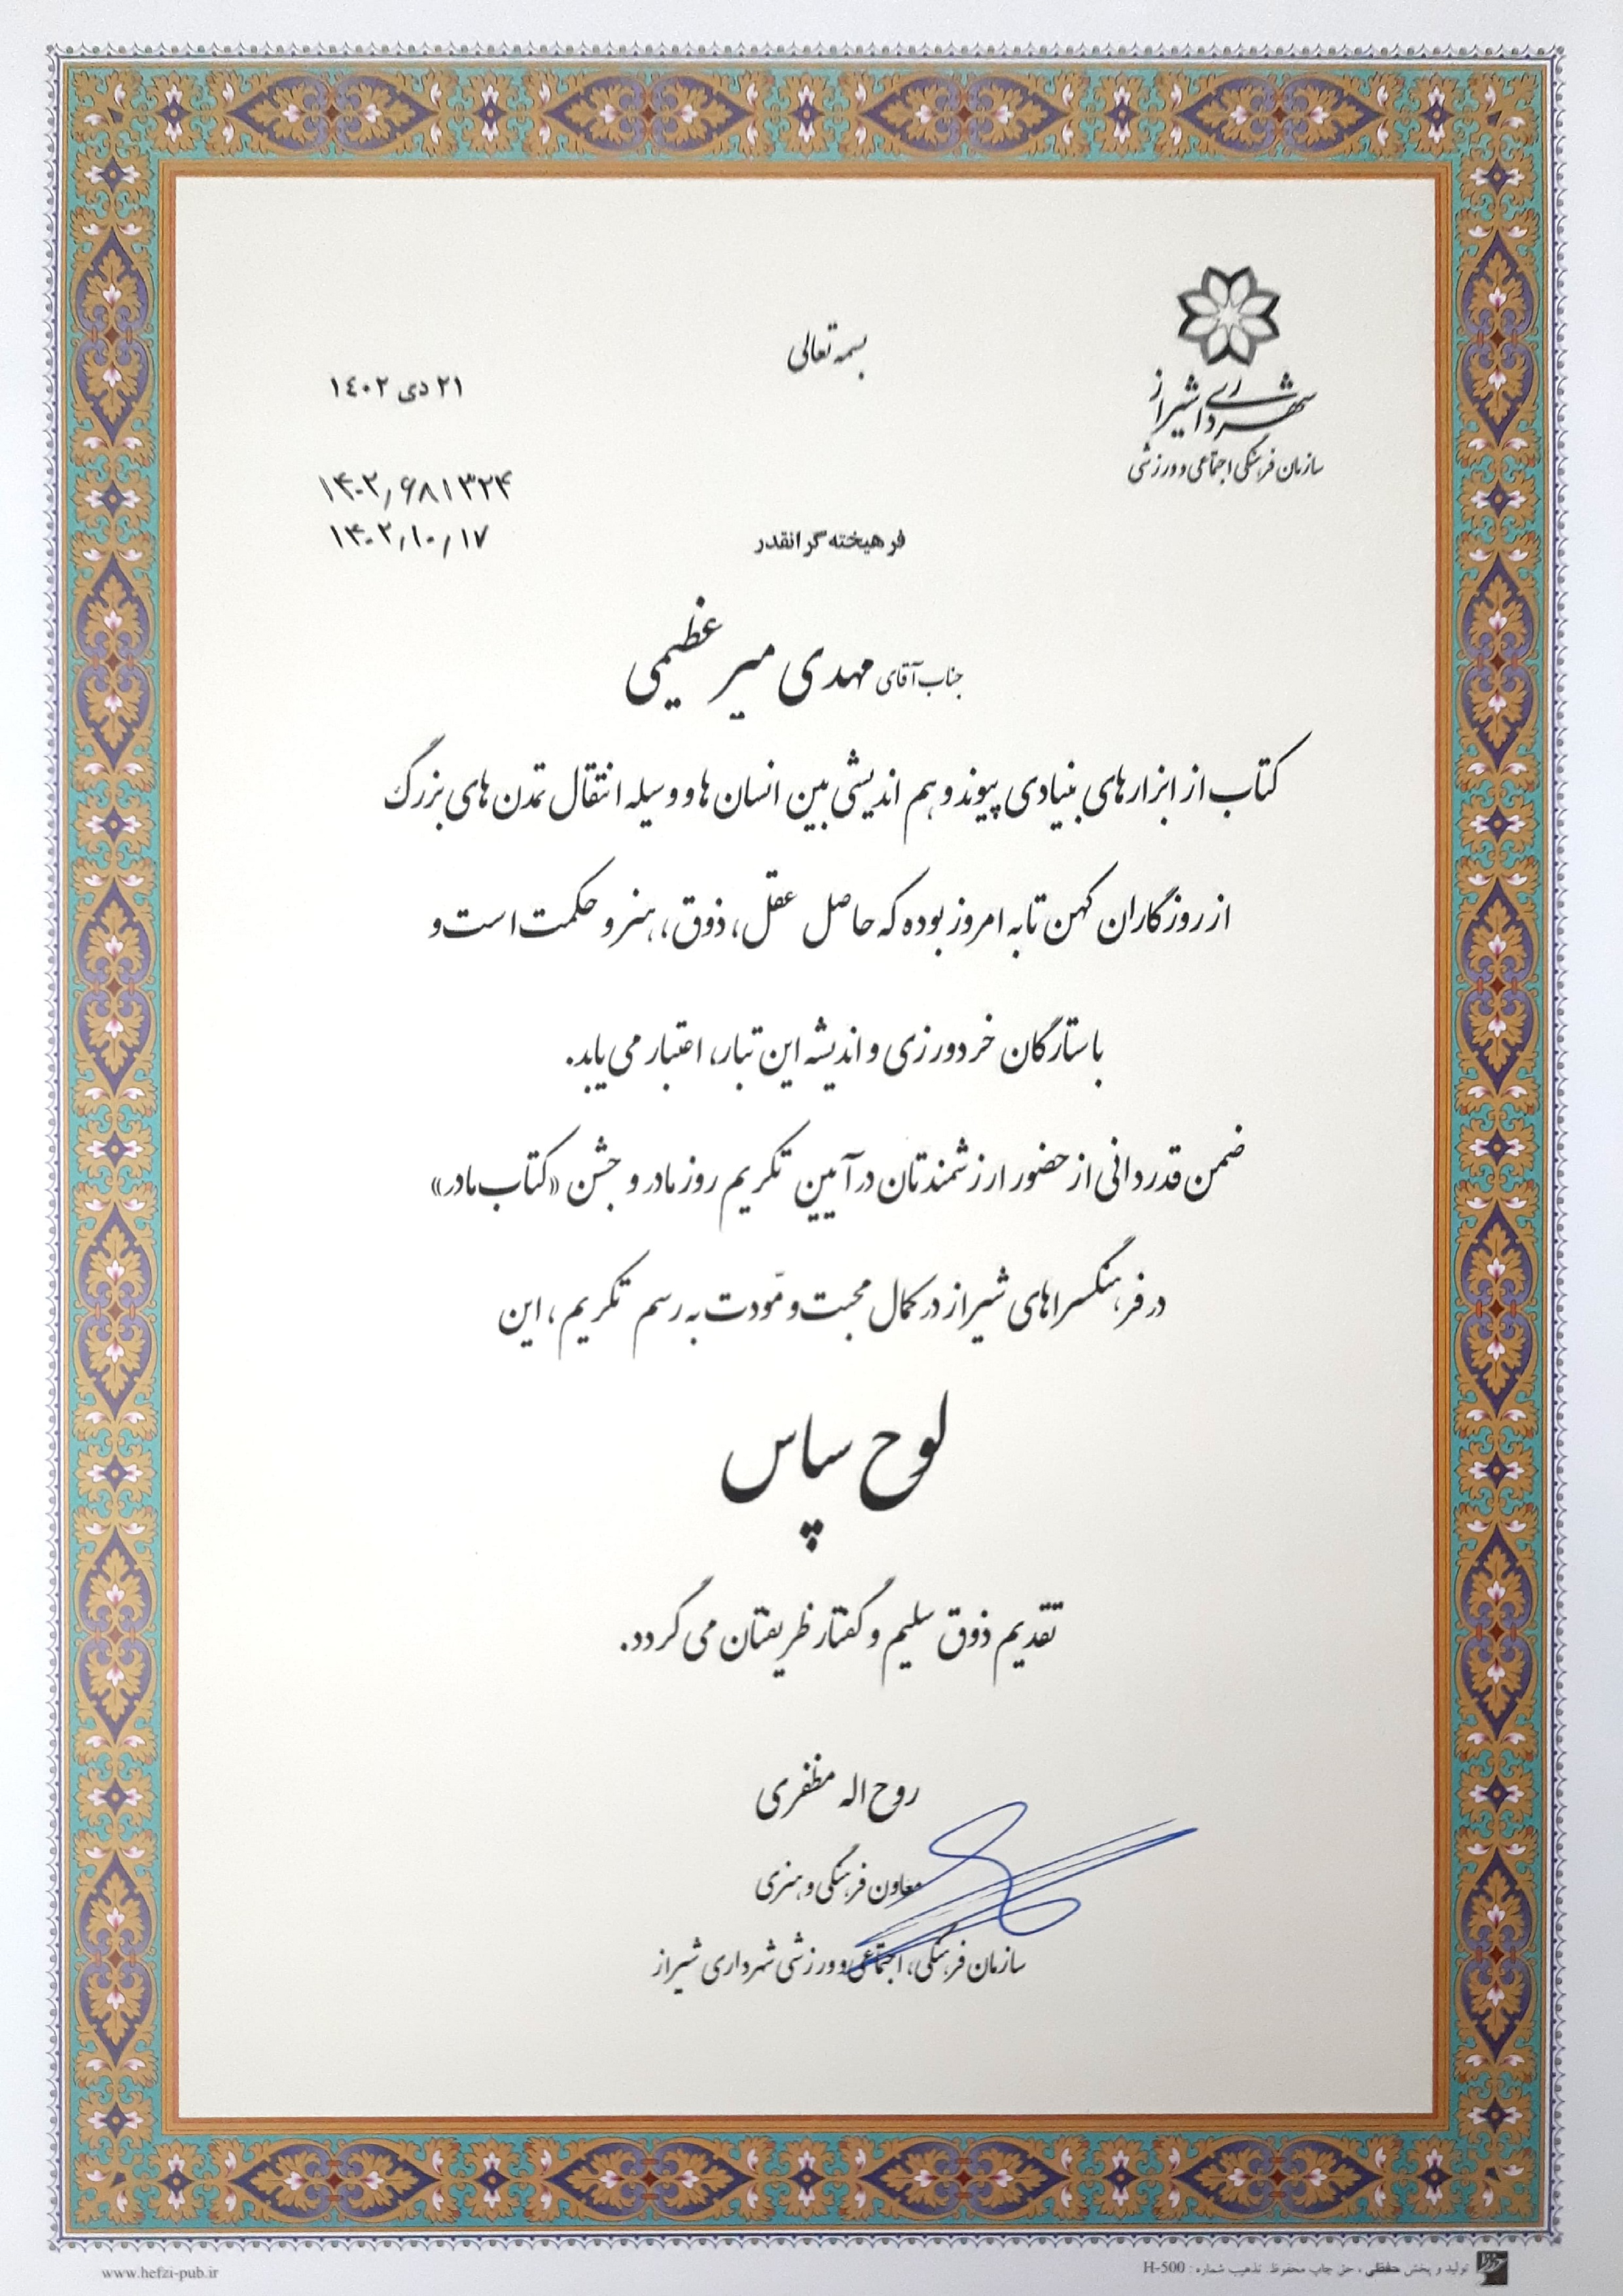 بسمه تعالی
شهرداری شیراز
سازمان فرهنگی اجتماعی و ورزشی
۲۱ دی ۱٤۰۲
۱۴۰۲٫۶۸۱۳۲۴
۱۴۰۲٫۱۰٫۱۷
فرهیخته گرانقدر
جناب آقای مهدی میر عظیمی
کتاب از ابزارهای بنیادی پیوند و هم اندیشی بین انسان ها و وسیله انتقال تمدن های بزرگ
از روزگاران کهن تا به امروز بوده که حاصل عقل، ذوق، هنر و حکمت است و
با ستارگان خردورزی و اندیشه این تبار، اعتبار می یابد.
ضمن قدردانی از حضور ارزشمندتان در آیین تکریم روز مادر و جشن «کتاب مادر»
در فرهنگسراهای شیراز در کمال محبت و مودّت به رسم تکریم، این
لوح سپاس
تقدیم ذوق سلیم و گفتار ظریفتان می گردد.
روح اله مظفری
معاون فرهنگی و هنری
سازمان فرهنگی، اجتماعی و ورزشی شهرداری شیراز
www.hefzi-pub.ir
تولید و پخش حفظی ، حق چاپ محفوظ. تذهیب شماره : H-500